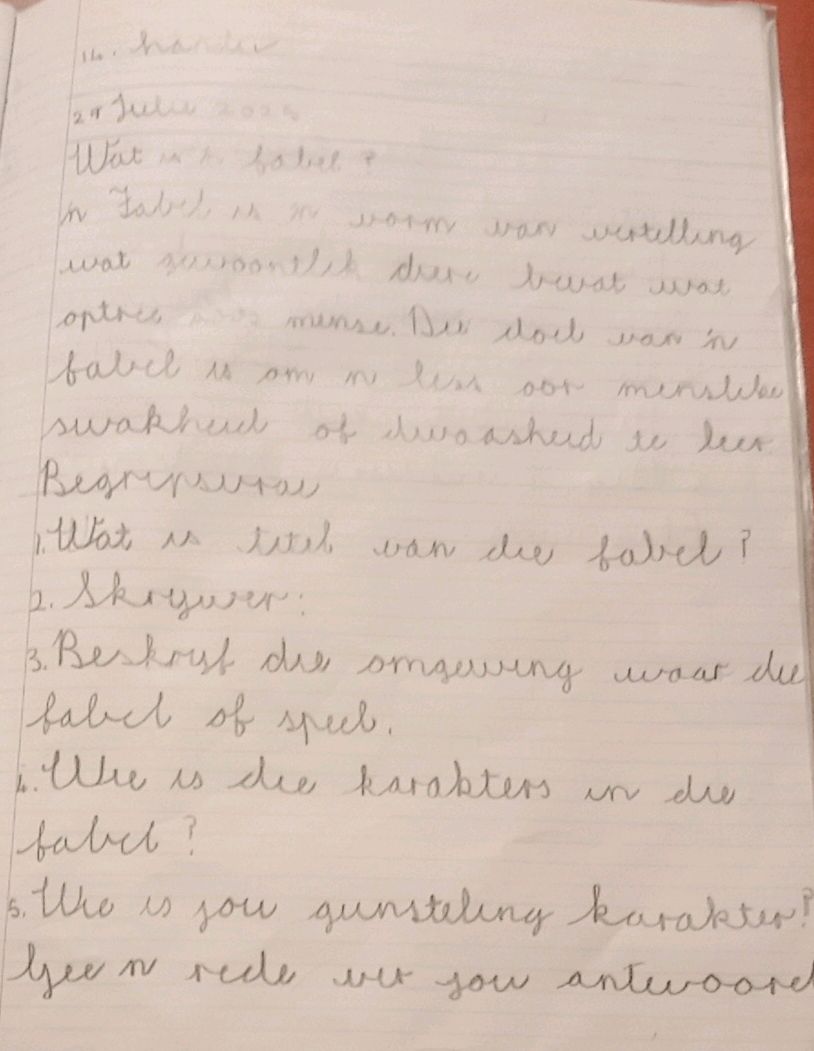 29 Julie
Wat is 'n fabel?
'n Fabel is 'n vorm van vertelling
wat gewoontlik diere bevat wat
optree soos mense. Die doel van 'n
fabel is om 'n less oor menslike
swakheid of dwaasheid te leer
Begripsvrae
1. Wat is titel van die fabel?
2. Skrywer:
3. Beskryf die omgewing waar die
fabel of speel.
4. Wie is die karakters in die
fabel?
5. Wie is jou gunsteling karakter?
Gee 'n rede vir jou antwoord